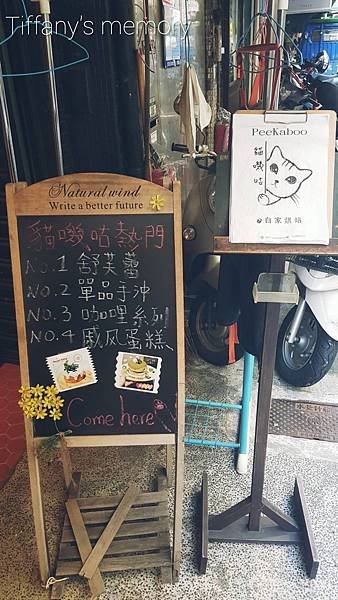 Tiffany's memory
Natural wind
Write a better future
貓嘰咕熱門
NO.1 舒芙蕾
NO.2 單品手沖
NO.3 咖哩系列
NO.4 戚风蛋糕
Come here
PeeKaboo
貓嘰咕
自家烘焙